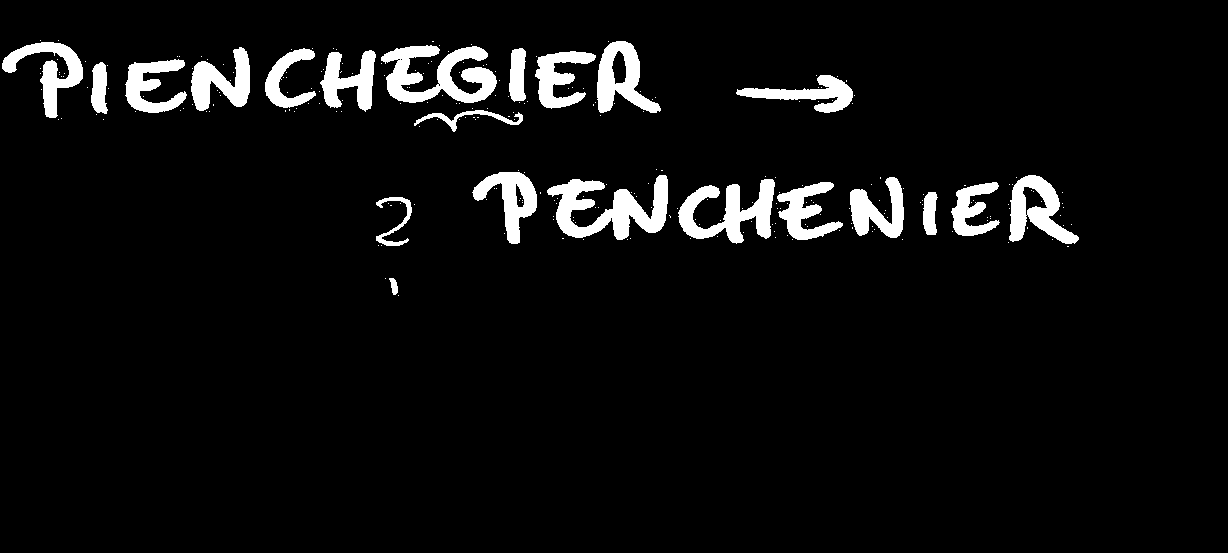 PIENCHEGIER →
? PENCHENIER